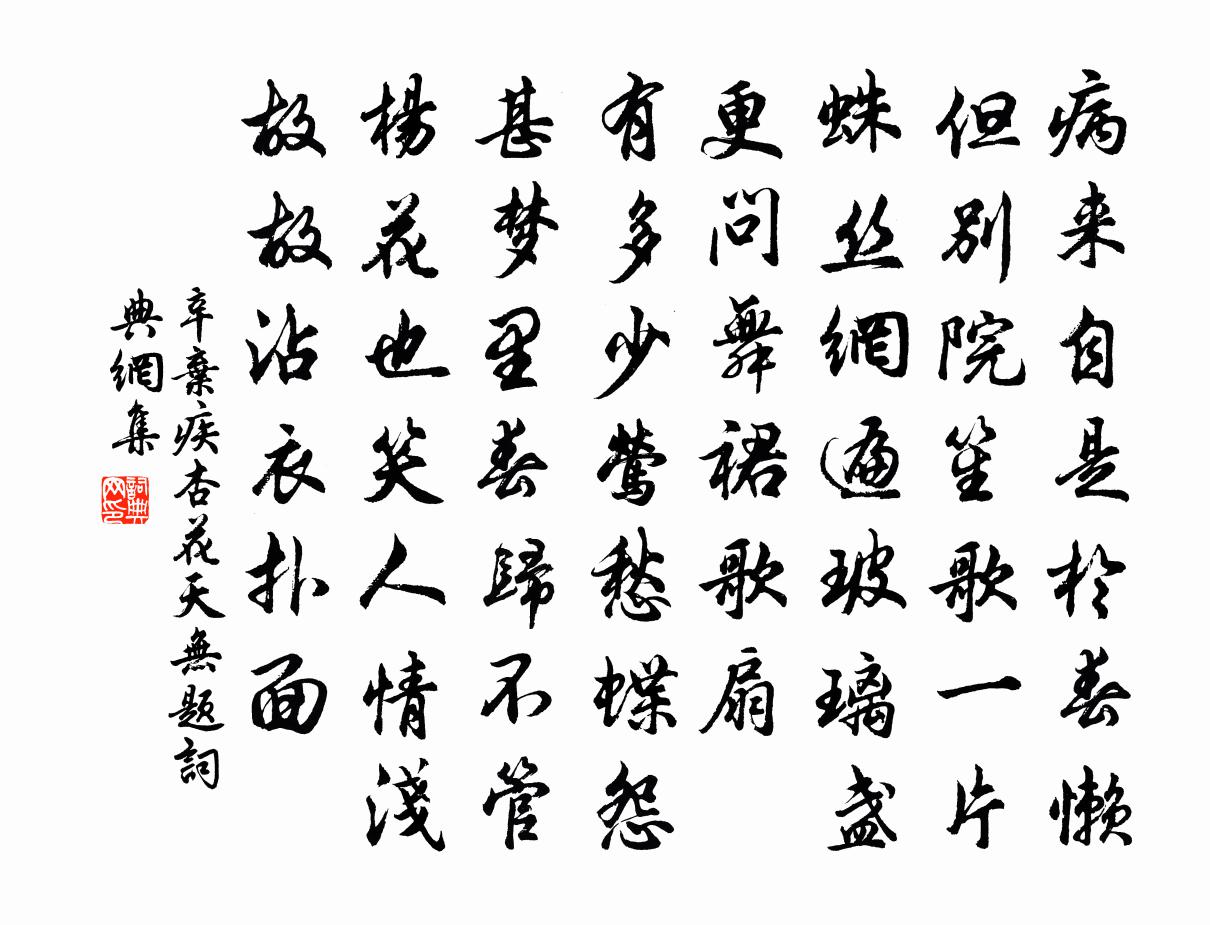 病来自是於春懒
但别院笙歌一片
蛛丝網遍玻璃盏
更问舞裙歌扇
有多少莺愁蝶怨
甚梦里春歸不管
楊花也笑人情淺
故故沾衣扑面
辛棄疾杏花天無题詞
典網集
詞典网印